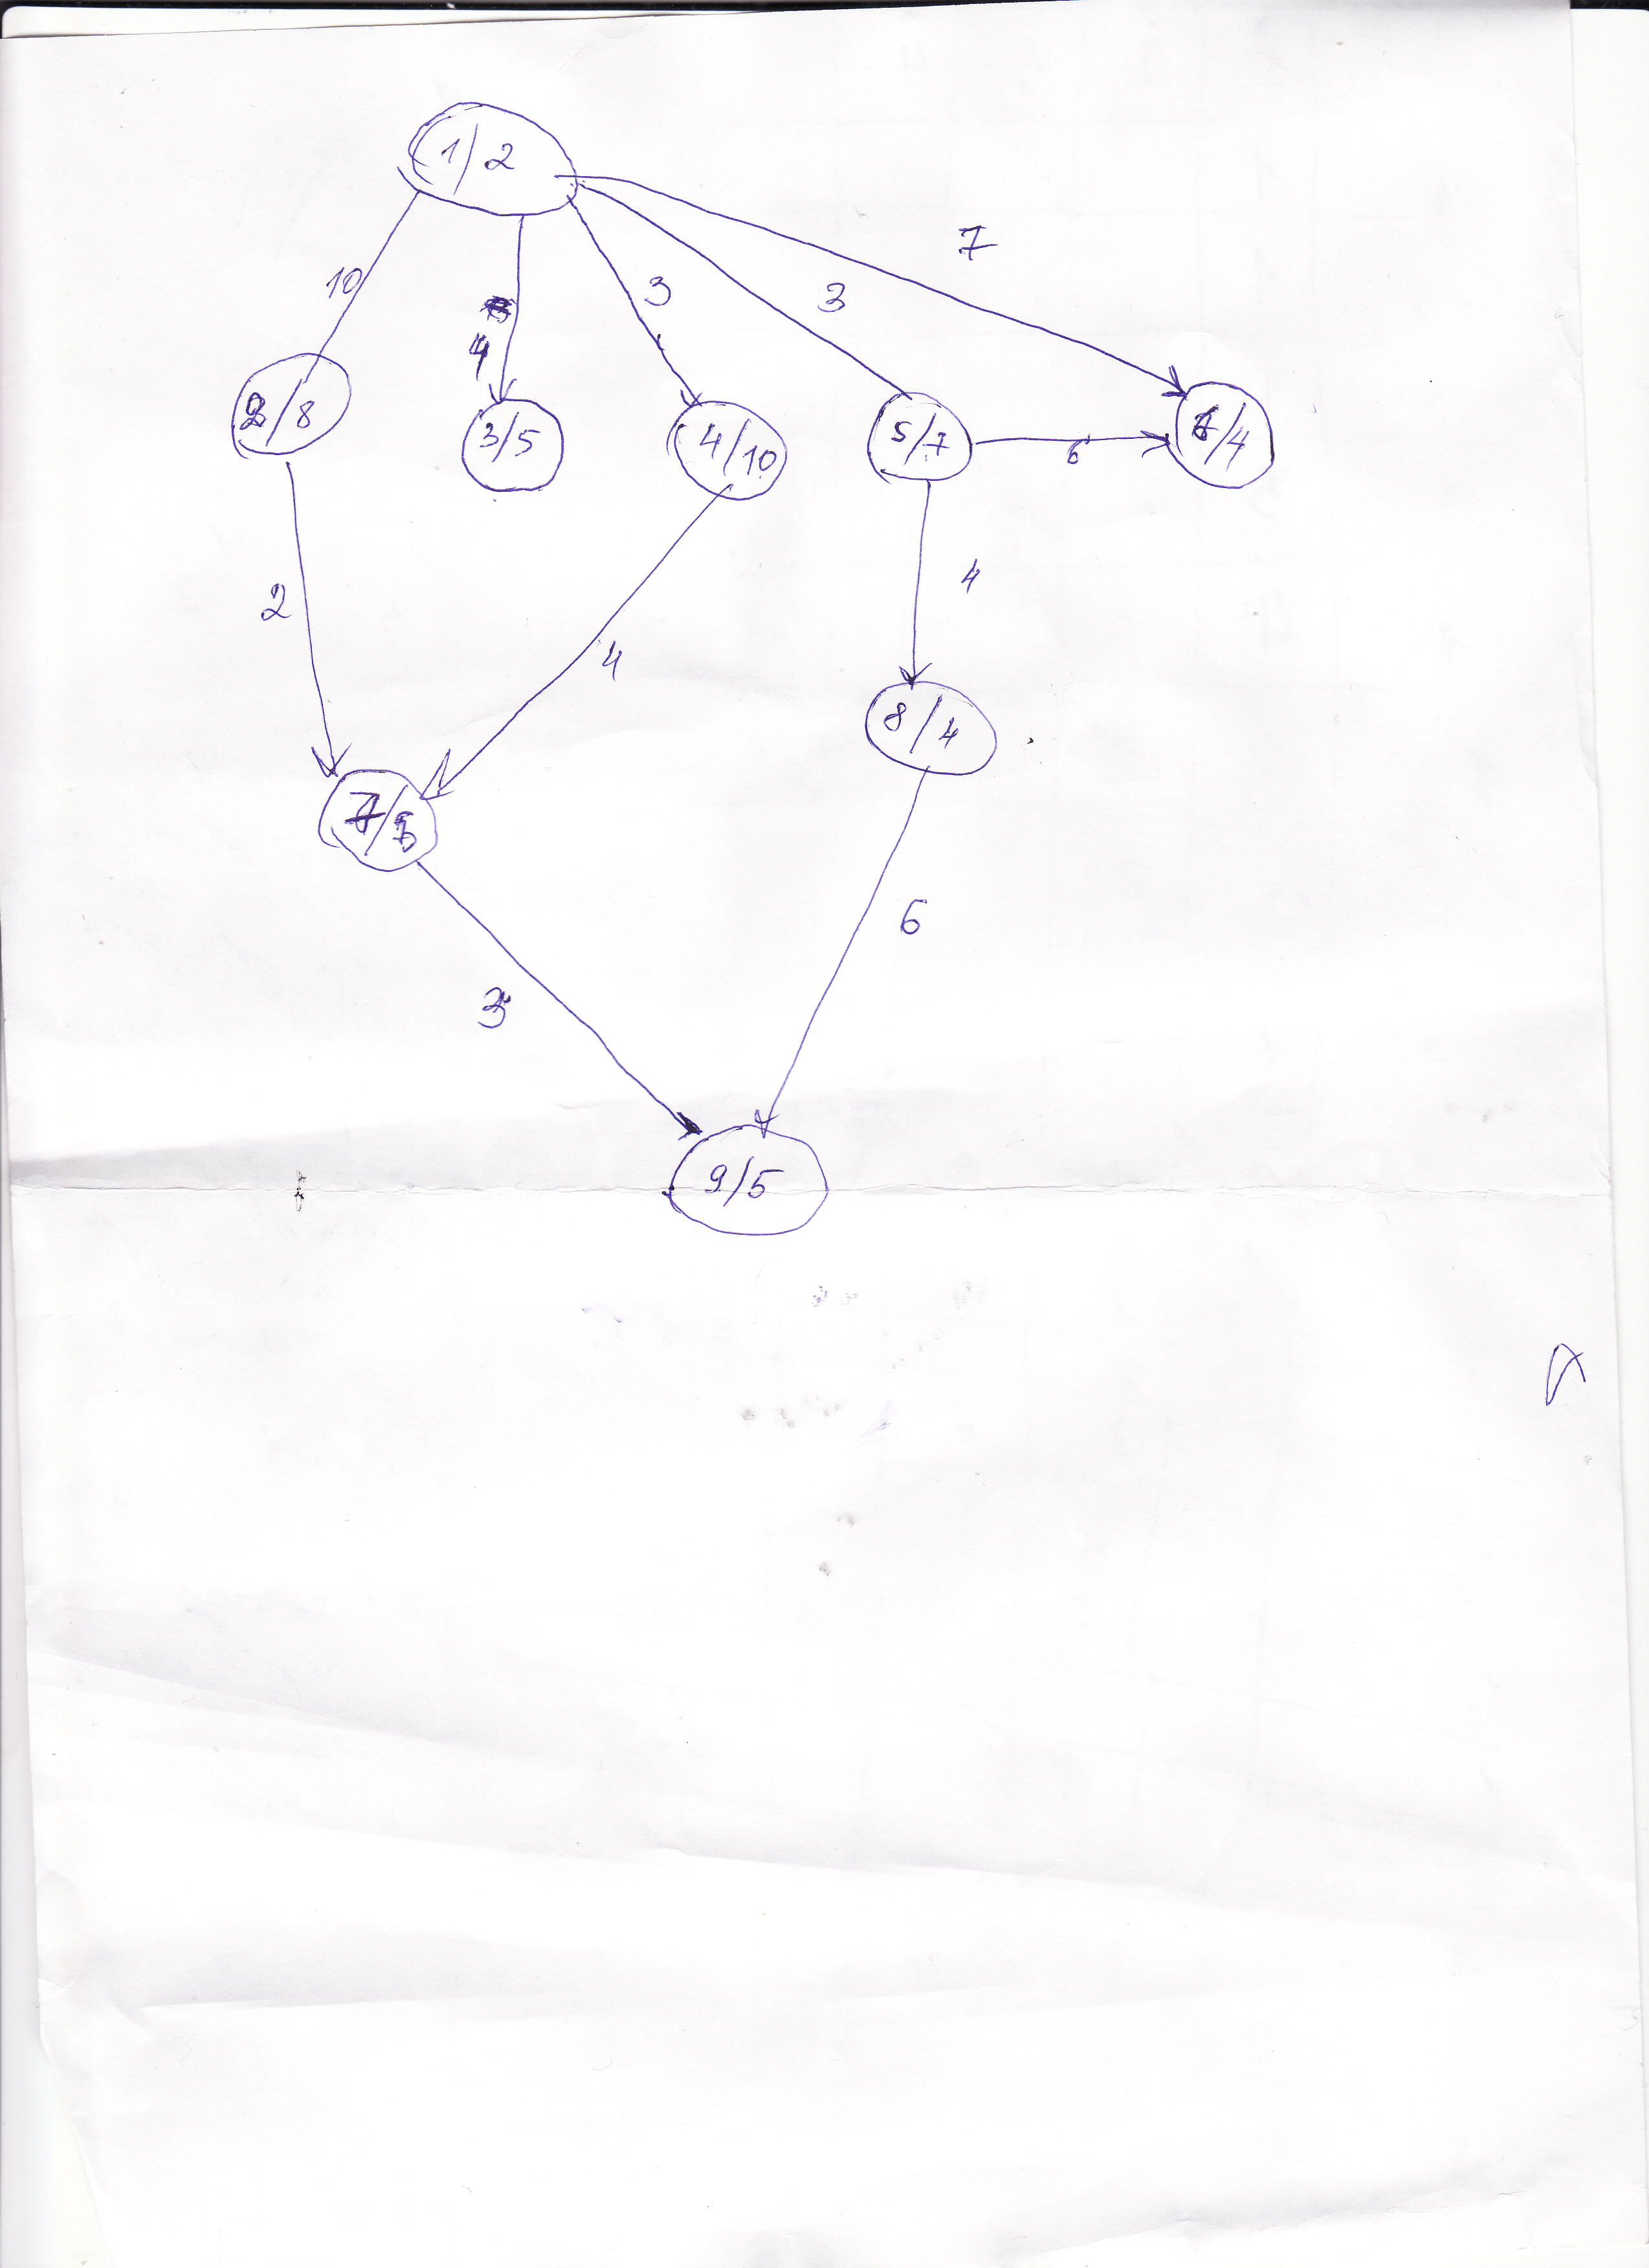 1/2
7
10
3
3
4
2/8
3/5
4/10
5/7
6
6/4
2
4
4
8/4
7/
6
3
9/5